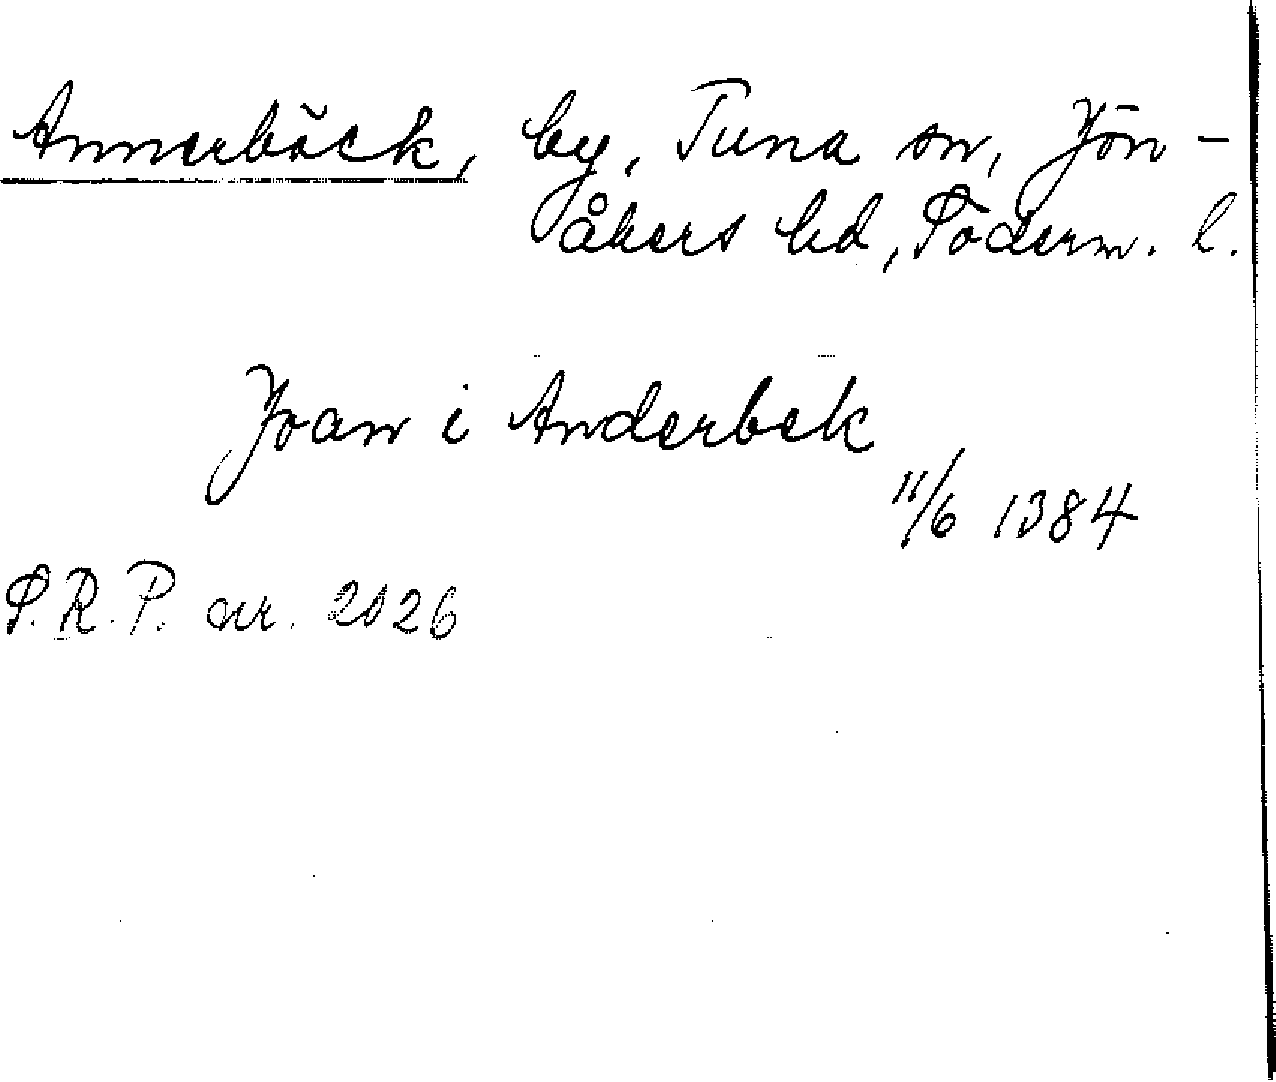 Annerbäck, by, Tuna sn, Jön-
åkers hd, Söderm. l.
Joan i Anderbek
11/6 1384
S.R.P. nr. 2026